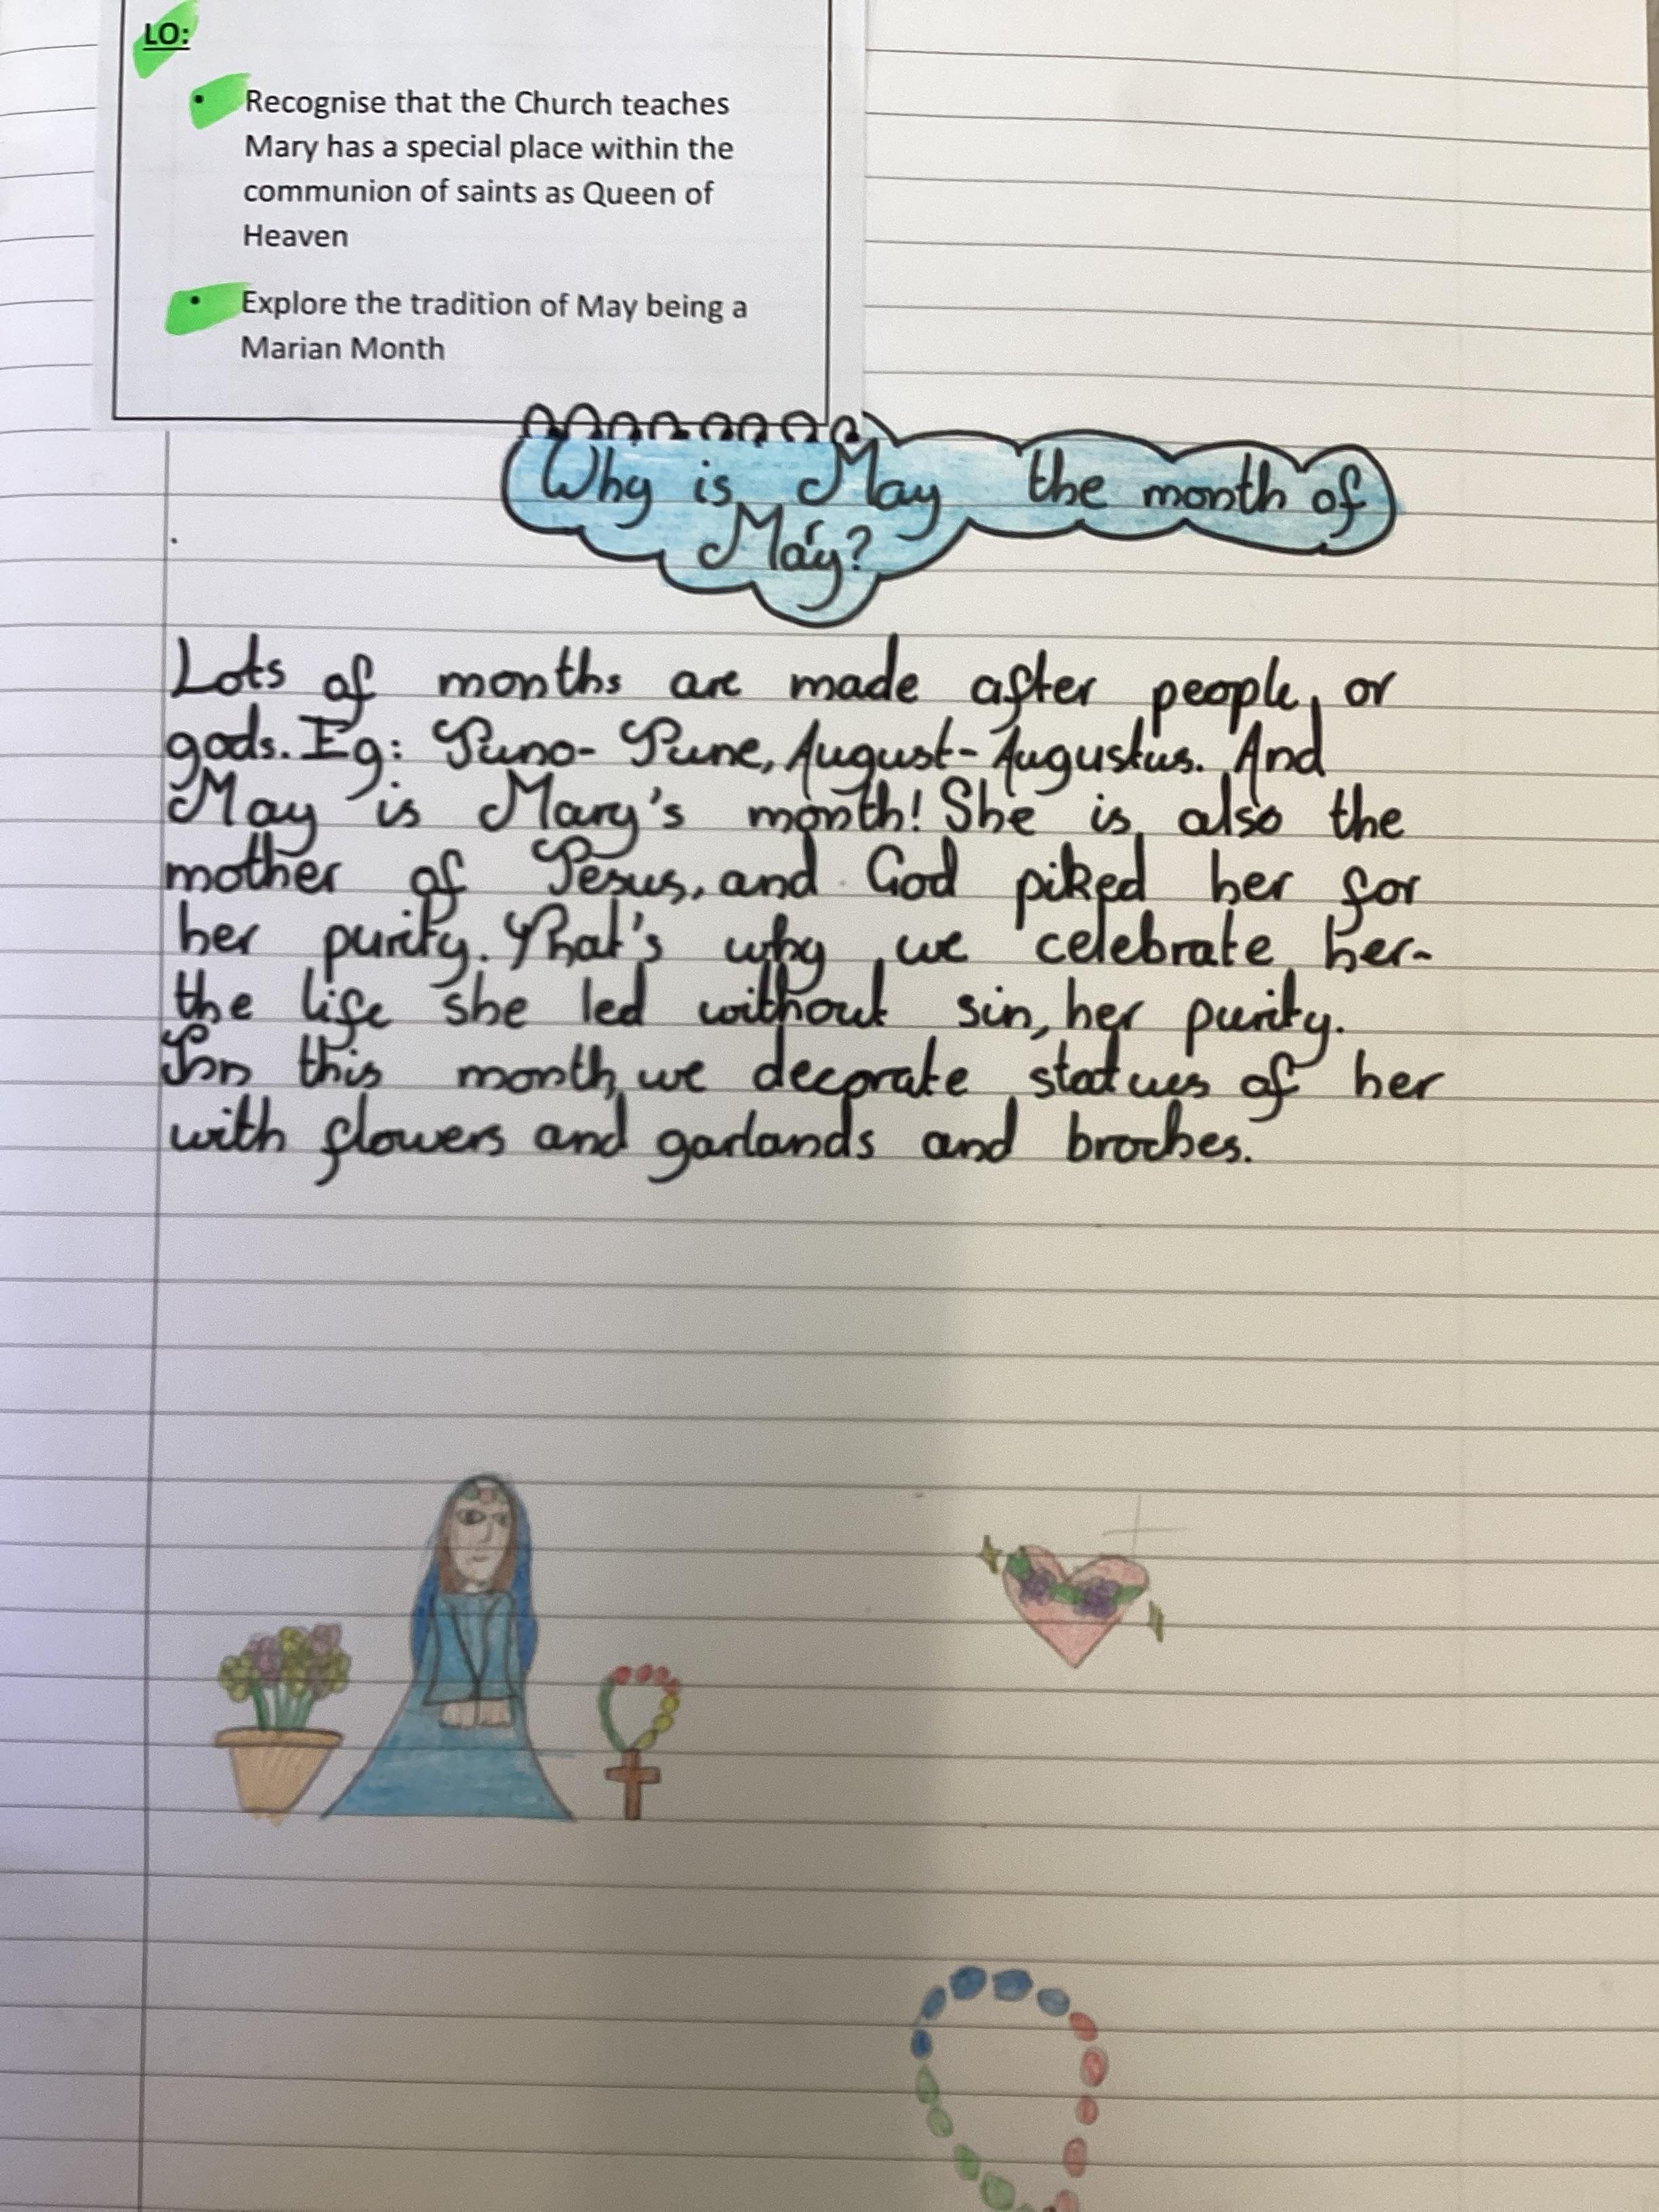 LO:
• Recognise that the Church teaches
Mary has a special place within the
communion of saints as Queen of
Heaven
• Explore the tradition of May being a
Marian Month
Why is May the month of
Mary?
Lots of months are made after people, or
gods. Eg: Juno- June, August- Augustus. And
May is Mary's month! She is also the
mother of Jesus, and God piked her for
her purity. That's why we celebrate her-
the life she led without sin, her purity.
In this month, we decorate statues of her
with flowers and garlands and broches.